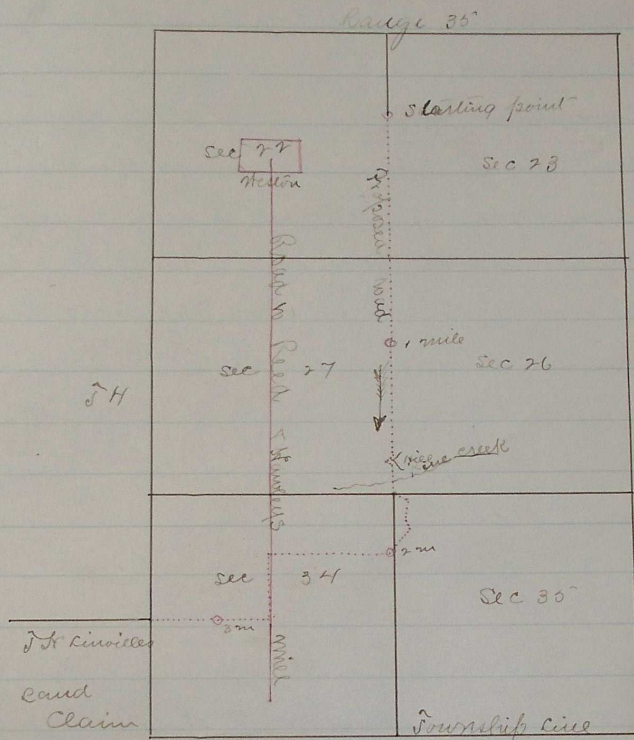 Range 35
Starting point
Sec 22
Weston
Sec 23
Proposed road
Road to Reed & Hawleys Mill
1 mile
Sec 27
Sec 26
T H
creek
2 m
Sec 34
Sec 35
3 m
T H Linvilles
Land
Claim
Township Line